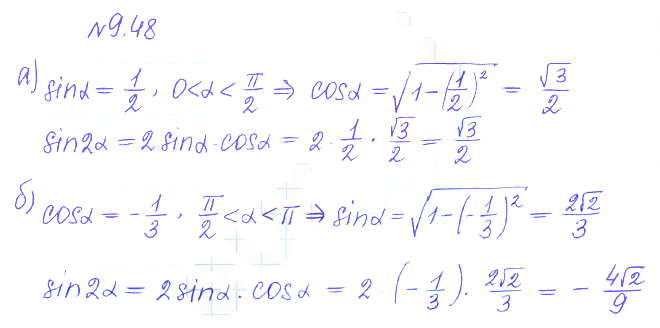 №9.48
а) sinα = 1/2, 0<α<π/2 ⇒ cosα = √(1-(1/2)²) = √3/2
sin2α = 2 sinα·cosα = 2·1/2·√3/2 = √3/2
б) cosα = -1/3, π/2<α<π ⇒ sinα = √(1-(-1/3)²) = 2√2/3
sin2α = 2sinα·cosα = 2·(-1/3)·2√2/3 = -4√2/9